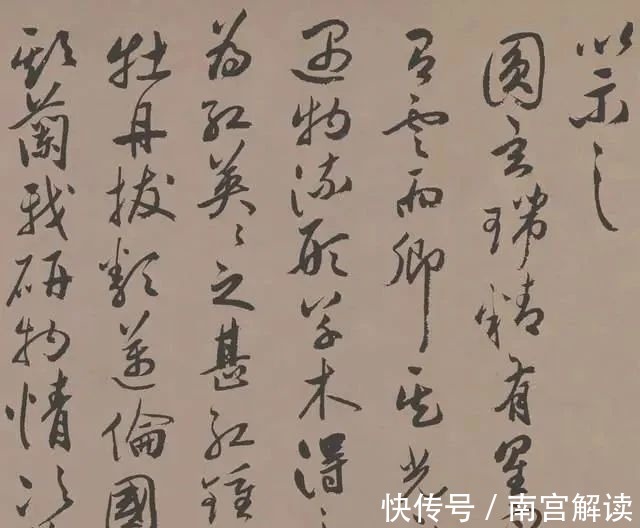 以示之
圓玄瑞精有星
有雲而卿其光
遇物流形草木得
為紅英々之甚紅鍾
牡丹拔類邁倫國
欺蘭我研物情次
快传号 / 南宫解读